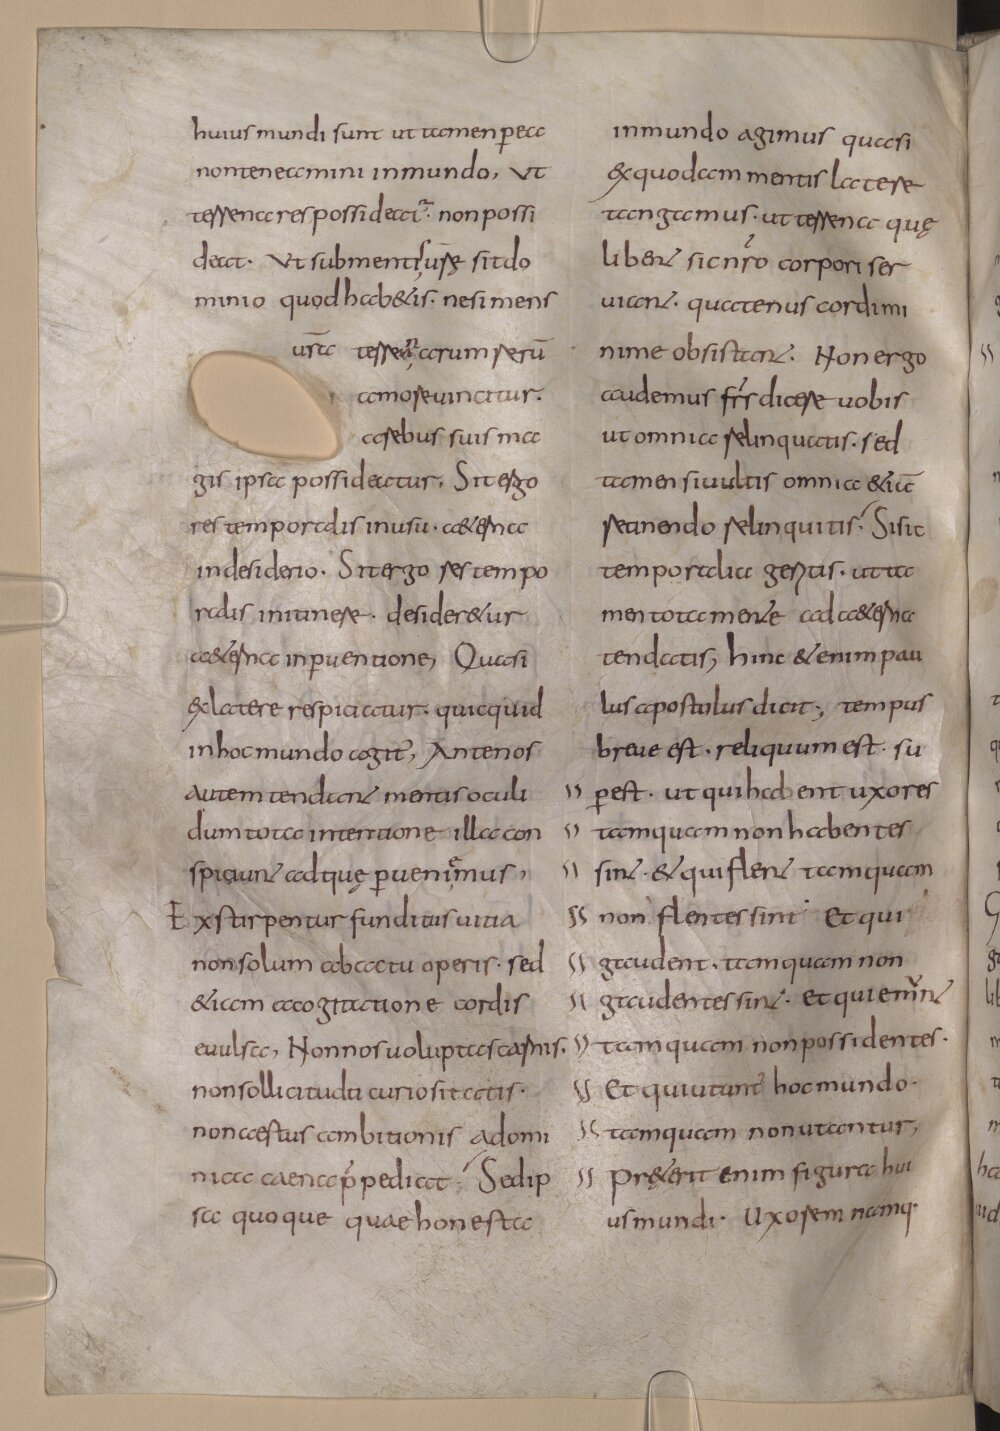 huius mundi sunt ut tamen pea
non teneamini in mundo, Ut
terrena res possideat̄ʳ. non possi
deat. Ut sub mentis ur̄ę sit do
minio quod hab&is. ne si mens
ur̄a terrenarum rerū
amore uincitur.
a rebus suis ma
gis ipsa possideatur, Sit ergo
res temporalis in usu. a&erna
in desiderio. Sit ergo res tempo
ralis in itinere. desider&ur
a&erna in ꝑuentione, Quasi
ex latere respiciatur. quicquid
in hoc mundo agit̄, Ante nos
autem tendant mentis oculi
dum tota intentione illa con
spiciunt ad quę ꝑuenimus,
Exstirpentur funditus uitia
non solum ab actu operis. sed
&iam a cogitatione cordis
euulsa, Non nos uoluptas carnis.
non sollicituda curiositatis.
non aestus ambitionis a domi
nica caena p̄pediat. Sed ip
sa quoque quae honesta
in mundo agimus quasi
ex quodam mentis latere
tangamus. ut terrena quę
libent sic nr̄o corpori ser
uiant. quatenus cordi mi
nime obsistant. Non ergo
audemus fr̄s dicere uobis
ut omnia relinquatis. sed
tamen si uultis omnia &iā
retinendo relinquitis. Si sic
temporalia geritis. ut ta
men tota mente ad a&erna
tendatis, hinc &enim pau
lus apostolus dicit; tempus
breue est. reliquum est. su
ꝑest. ut qui habent uxores
tamquam non habentes
sint. & qui flent tamquam
non flentes sint. Et qui
gaudent. tamquam non
gaudentes sint. et qui emunt
tamquam non possidentes.
Et qui utunt̄ hoc mundo.
tamquam non utantur,
Pr&erit enim figura hui
us mundi. Uxorem namq.